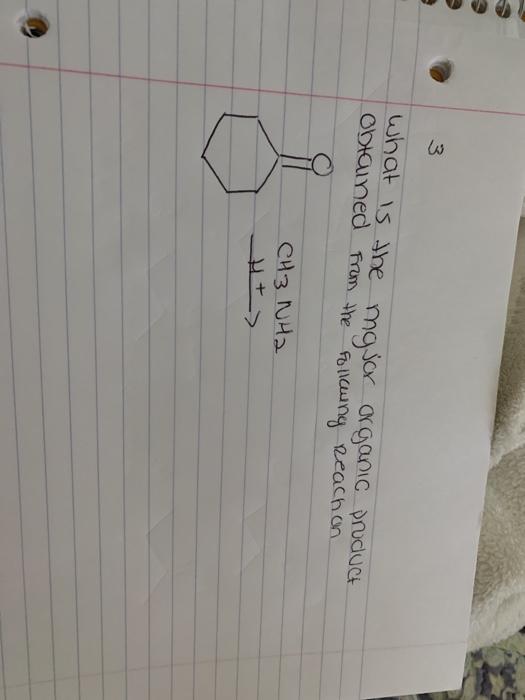 3
What is the major organic product
obtained from the following Reaction
O
CH3 NH2
H+